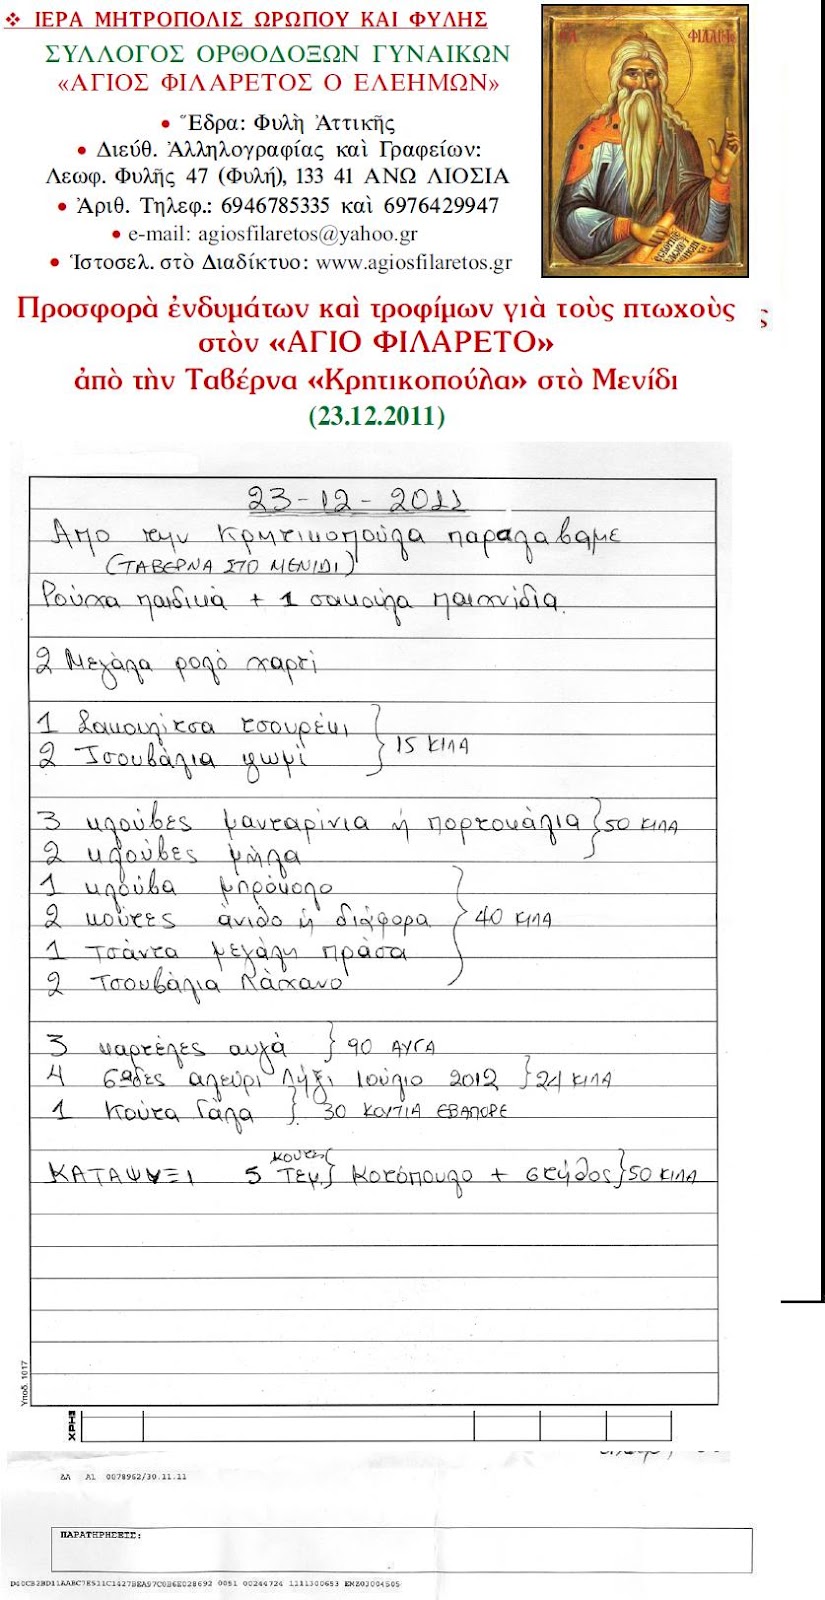 ❖ ΙΕΡΑ ΜΗΤΡΟΠΟΛΙΣ ΩΡΩΠΟΥ ΚΑΙ ΦΥΛΗΣ
ΣΥΛΛΟΓΟΣ ΟΡΘΟΔΟΞΩΝ ΓΥΝΑΙΚΩΝ
«ΑΓΙΟΣ ΦΙΛΑΡΕΤΟΣ Ο ΕΛΕΗΜΩΝ»
• Ἕδρα: Φυλὴ Ἀττικῆς
• Διεύθ. Ἀλληλογραφίας καὶ Γραφείων:
Λεωφ. Φυλῆς 47 (Φυλή), 133 41 ΑΝΩ ΛΙΟΣΙΑ
• Ἀριθ. Τηλεφ.: 6946785335 καὶ 6976429947
• e-mail: agiosfilaretos@yahoo.gr
• Ἱστοσελ. στὸ Διαδίκτυο: www.agiosfilaretos.gr
Προσφορὰ ἐνδυμάτων καὶ τροφίμων γιὰ τοὺς πτωχοὺς
ς
στὸν «ΑΓΙΟ ΦΙΛΑΡΕΤΟ»
ἀπὸ τὴν Ταβέρνα «Κρητικοπούλα» στὸ Μενίδι
(23.12.2011)
23-12-2011
Απο την Κρητικοπούλα παραλαβαμε
(ΤΑΒΕΡΝΑ ΣΤΟ ΜΕΝΙΔΙ)
Ρούχα παιδικά + 1 σακούλα παιχνίδια.
2 Μεγάλα ρολό χαρτί
1 Σακουλίτσα τσουρέκι
2 Τσουβάλια ψωμί } 15 ΚΙΛΑ
3 κλούβες μανταρίνια ή πορτοκάλια } 50 ΚΙΛΑ
2 κλούβες μήλα
1 κλούβα μπρόκολο
2 κούτες άνιθο ή διάφορα } 40 ΚΙΛΑ
1 Τσάντα μεγάλη πράσα
2 Τσουβάλια Λάχανο
3 καρτέλες αυγά } 90 ΑΥΓΑ
4 6αδες αλεύρι Λήξι Ιούλιο 2012 } 24 ΚΙΛΑ
1 Κούτα Γάλα } 30 ΚΟΥΤΙΑ ΕΒΑΠΟΡΕ
κουτες
ΚΑΤΑΨΥΞΙ 5 Τεμ} Κοτόπουλο + στήθος } 50 ΚΙΛΑ
Υποδ. 1017
ΧΡΗΣ
ΔΑ Α1 0078962/30.11.11
ΠΑΡΑΤΗΡΗΣΕΙΣ: